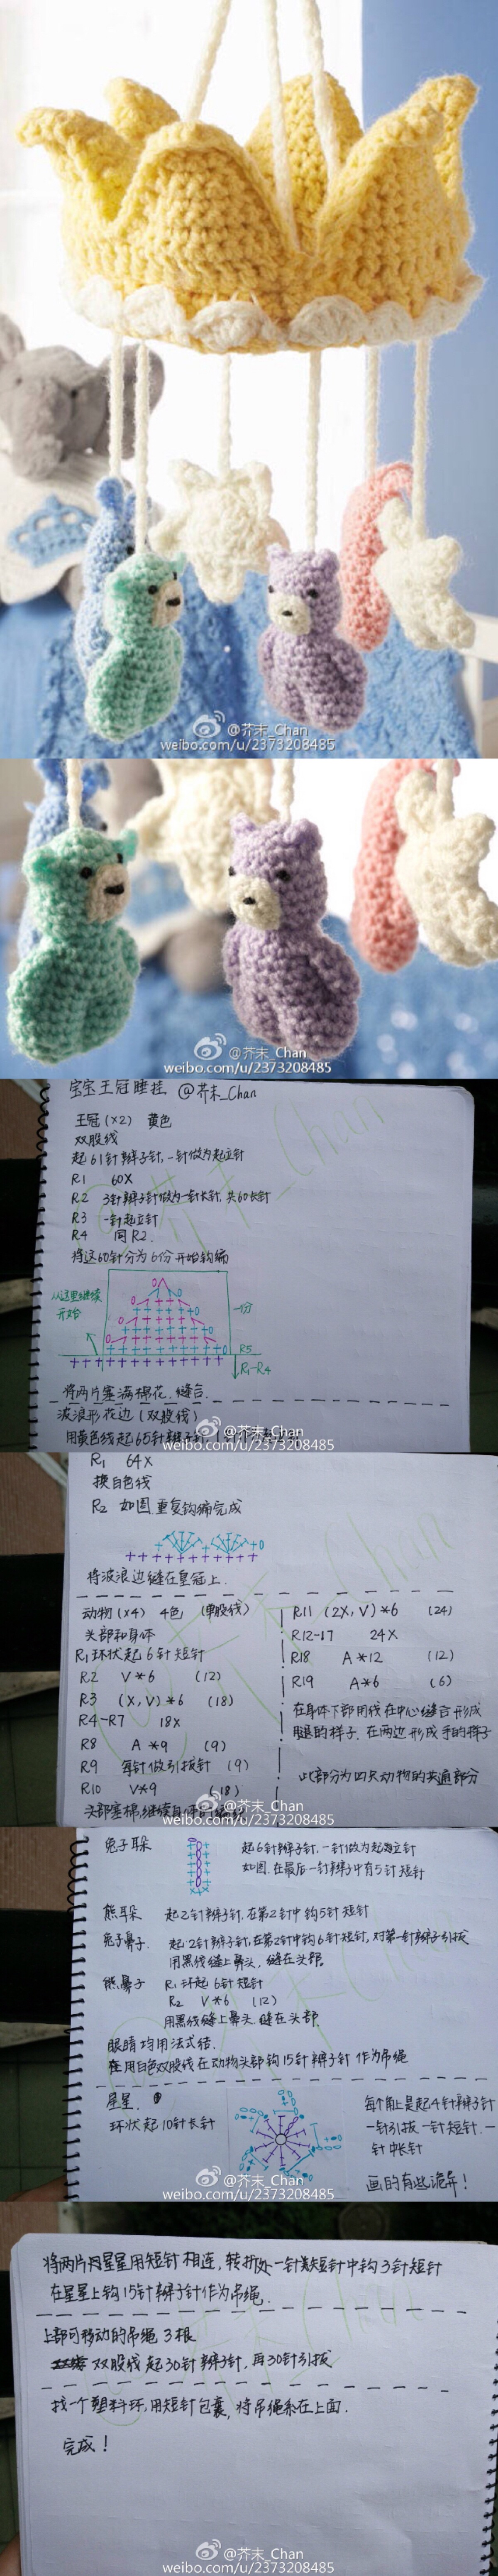 @芥末_Chan
weibo.com/u/2373208485
@芥末_Chan
weibo.com/u/2373208485
宝宝王冠睡挂 @芥末_Chan
王冠(×2) 黄色
双股线
起61针辫子针,一针做为起立针
R1 60X
R2 3针辫子针做为一针长针,共60长针
R3 一针起立针
R4 同R2.
将这60针分为6份开始钩编
从这里继续
开始
一份
R5
R1-R4
将两片塞满棉花,缝合.
波浪形花边(双股线)
用黄色线起65针辫子针,
@芥末_Chan
weibo.com/u/2373208485
R1 64X
换白色线
R2 如图,重复钩编完成
将波浪边缝在皇冠上.
动物(×4) 4色 (单股线)
头部和身体
R1 环状起6针短针
R2 V*6 (12)
R3 (X,V)*6 (18)
R4-R7 18X
R8 A*9 (9)
R9 每针做引拔针 (9)
R10 V*9 (18)
头部塞棉,继续
R11 (2X,V)*6 (24)
R12-17 24X
R18 A*12 (12)
R19 A*6 (6)
在身体下部用线在中心缝合形成
腿的样子.在两边形成手的样子
此部分为四只动物的共通部分
@芥末_Chan
weibo.com/u/2373208485
兔子耳朵
起6针辫子针,一针做为起立针
如图.在最后一针辫子中有5针短针
熊耳朵 起2针辫子针.在第2针中钩5针短针
兔子鼻子. 起2针辫子针,在第2针中钩6针短针,对第一针辫子引拔
用黑线缝上鼻头,缝在头部.
熊鼻子 R1 环起6针短针
R2 V*6 (12)
用黑线缝上鼻头.缝在头部.
眼睛均用法式结.
用白色双股线在动物头部钩15针辫子针作为吊绳
星星.
环状起10针长针
每个角上是起4针辫子针
一针引拔一针短针.一
针中长针
画的有些诡异!
@芥末_Chan
weibo.com/u/2373208485
将两片星星用短针相连,转折处一针短针中钩3针短针
在星星上钩15针辫子针作为吊绳.
上部可移动的吊绳 3根
双股线起30针辫子针,再30针引拔
找一个塑料环,用短针包裹,将吊绳系在上面.
完成!
@芥末_Chan
weibo.com/u/2373208485